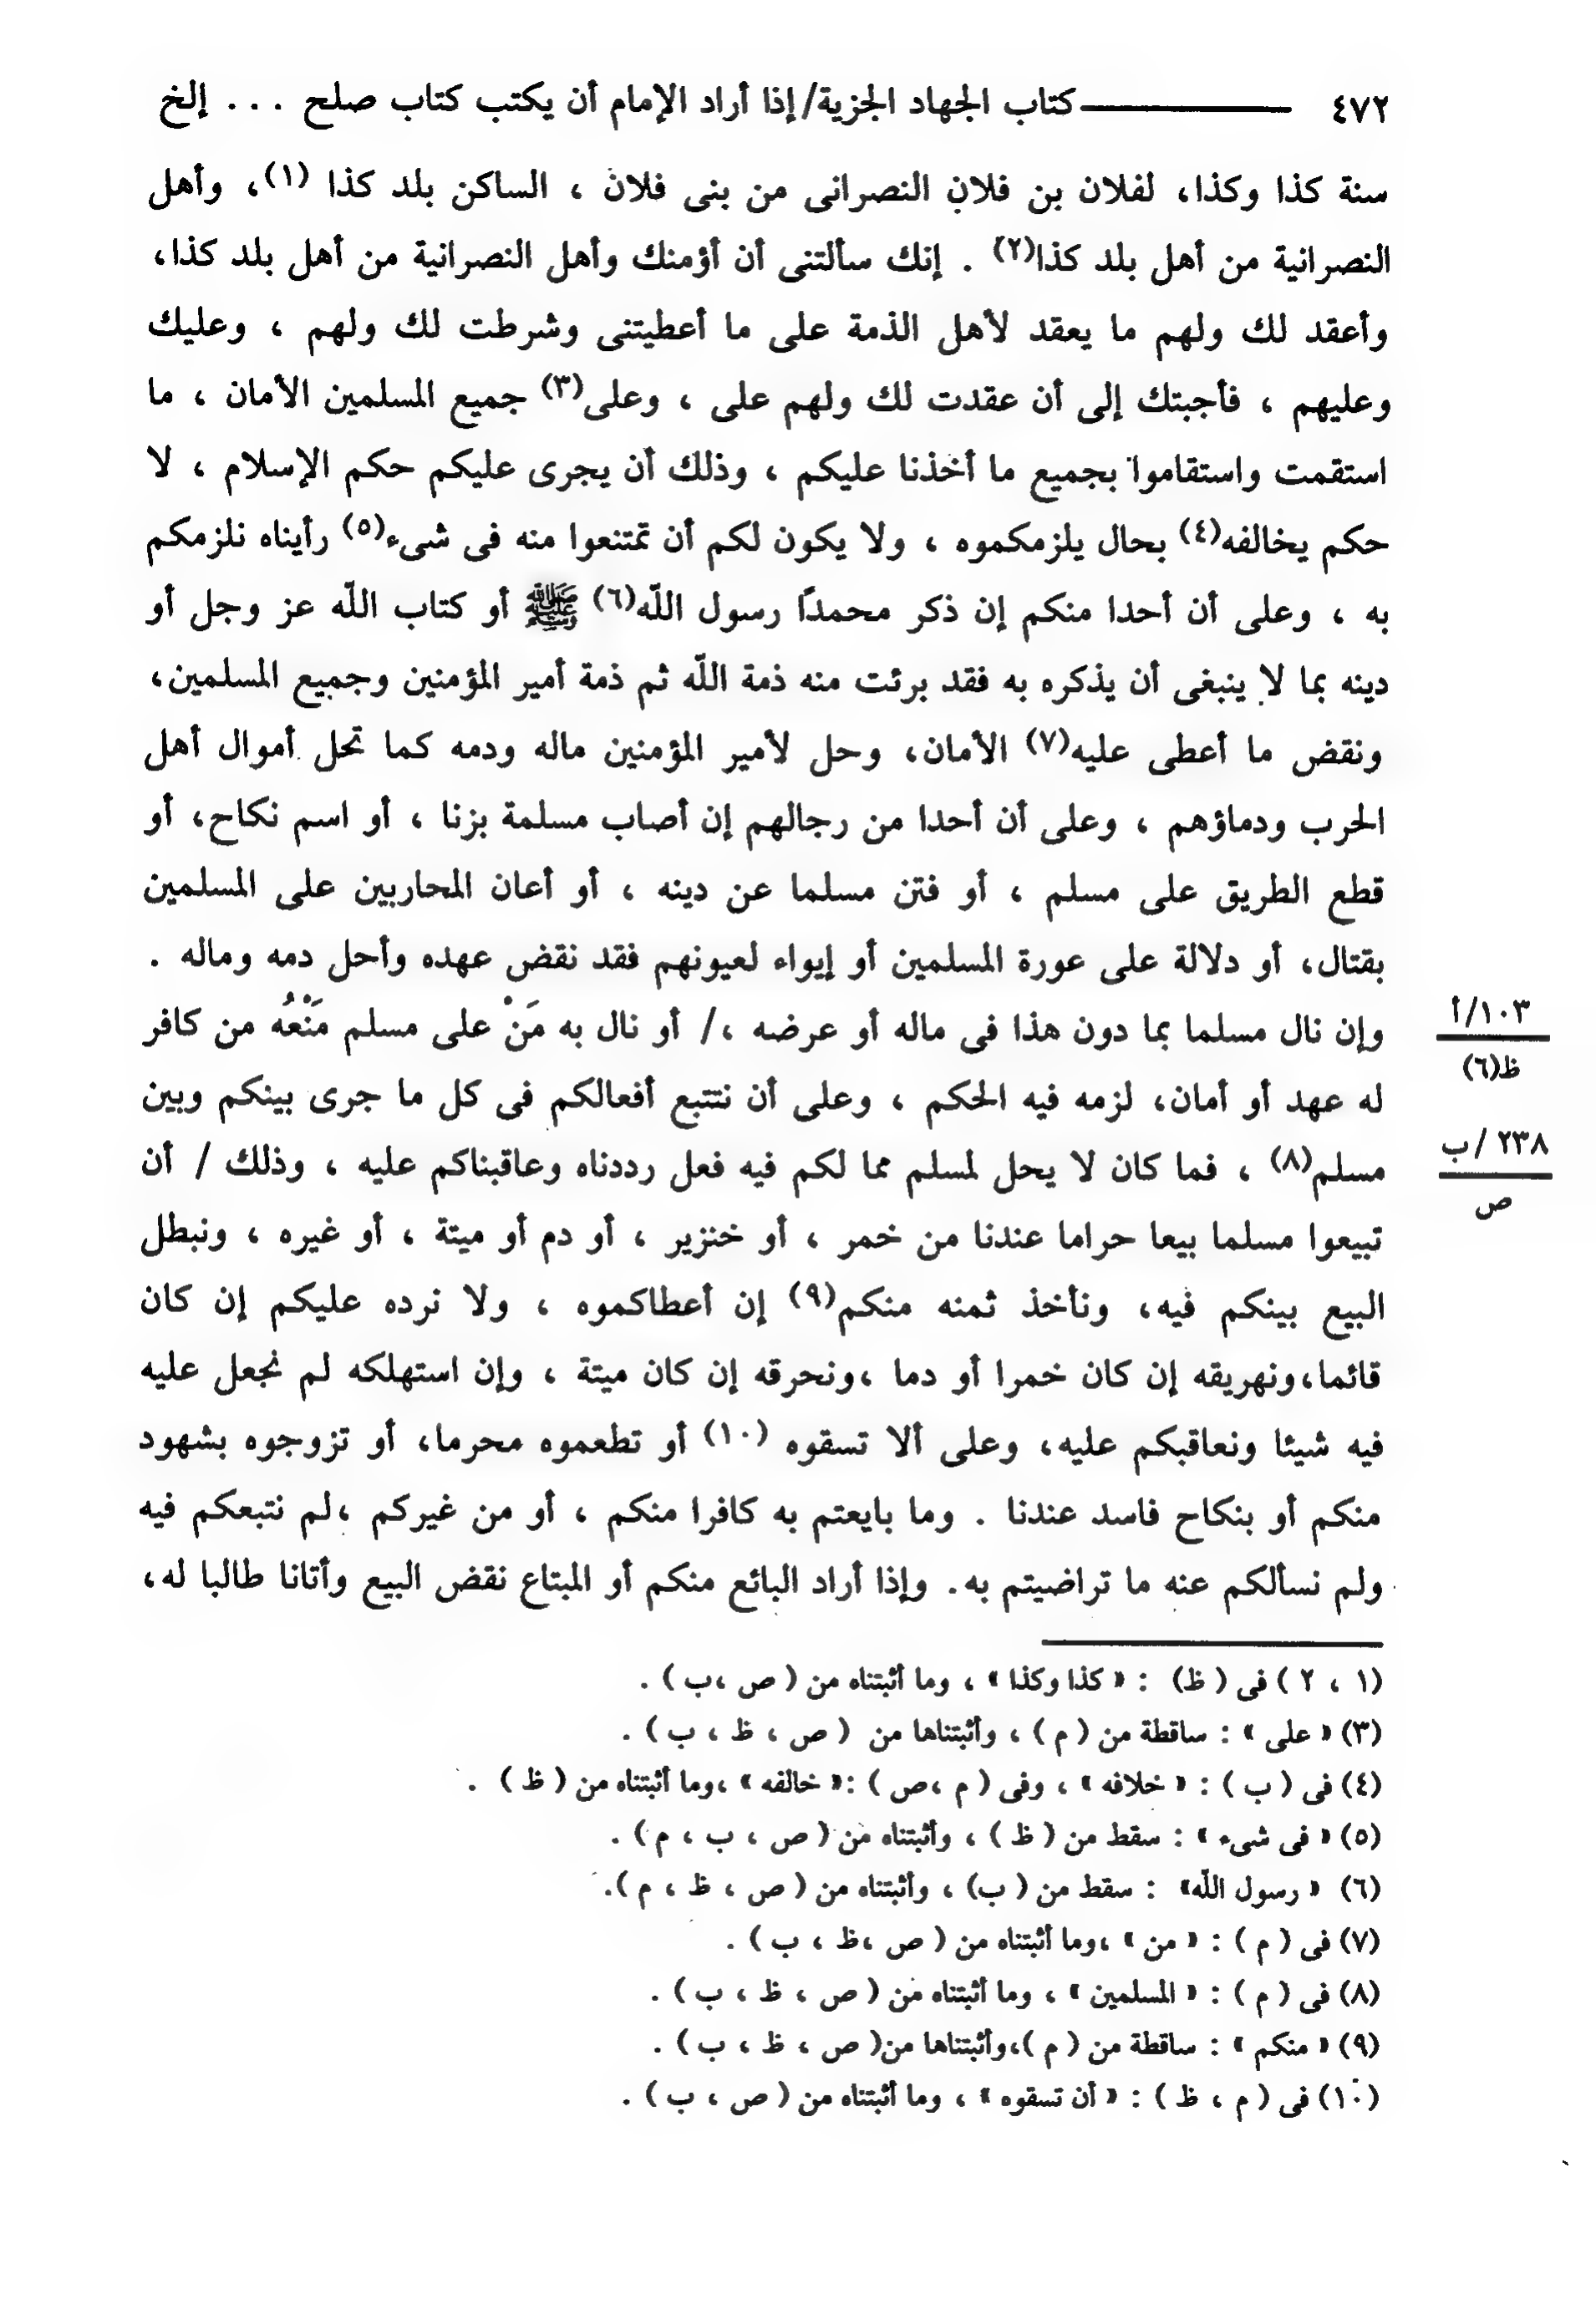 ٤٧٢ كتاب الجهاد الجزية/إذا أراد الإمام أن يكتب كتاب صلح ... إلخ
سنة كذا وكذا، لفلان بن فلان النصرانى من بنى فلان ، الساكن بلد كذا (١)، وأهل
النصرانية من أهل بلد كذا(٢) . إنك سألتنى أن أؤمنك وأهل النصرانية من أهل بلد كذا،
وأعقد لك ولهم ما يعقد لأهل الذمة على ما أعطيتنى وشرطت لك ولهم ، وعليك
وعليهم ، فأجبتك إلى أن عقدت لك ولهم على ، وعلى(٣) جميع المسلمين الأمان ، ما
استقمت واستقاموا بجميع ما أخذنا عليكم ، وذلك أن يجرى عليكم حكم الإسلام ، لا
حكم يخالفه(٤) بحال يلزمكموه ، ولا يكون لكم أن تمتنعوا منه فى شىء(٥) رأيناه نلزمكم
به ، وعلى أن أحدا منكم إن ذكر محمدًا رسول اللّه(٦) ﷺ أو كتاب اللّه عز وجل أو
دينه بما لا ينبغى أن يذكره به فقد برئت منه ذمة اللّه ثم ذمة أمير المؤمنين وجميع المسلمين،
ونقض ما أعطى عليه(٧) الأمان، وحل لأمير المؤمنين ماله ودمه كما تحل أموال أهل
الحرب ودماؤهم ، وعلى أن أحدا من رجالهم إن أصاب مسلمة بزنا ، أو اسم نكاح، أو
قطع الطريق على مسلم ، أو فتن مسلما عن دينه ، أو أعان المحاربين على المسلمين
بقتال، أو دلالة على عورة المسلمين أو إيواء لعيونهم فقد نقض عهده وأحل دمه وماله .
وإن نال مسلما بما دون هذا فى ماله أو عرضه ،/ أو نال به مَنْ على مسلم مَنْعُه من كافر
١٠٣/أ
ظ(٦)
له عهد أو أمان، لزمه فيه الحكم ، وعلى أن نتتبع أفعالكم فى كل ما جرى بينكم وبين
مسلم(٨) ، فما كان لا يحل لمسلم مما لكم فيه فعل رددناه وعاقبناكم عليه ، وذلك / أن
٢٣٨ /ب
ص
تبيعوا مسلما بيعا حراما عندنا من خمر ، أو خنزير ، أو دم أو ميتة ، أو غيره ، ونبطل
البيع بينكم فيه، ونأخذ ثمنه منكم(٩) إن أعطاكموه ، ولا نرده عليكم إن كان
قائما،ونهريقه إن كان خمرا أو دما ،ونحرقه إن كان ميتة ، وإن استهلكه لم نجعل عليه
فيه شيئا ونعاقبكم عليه، وعلى ألا تسقوه (١٠) أو تطعموه محرما، أو تزوجوه بشهود
منكم أو بنكاح فاسد عندنا . وما بايعتم به كافرا منكم ، أو من غيركم ،لم نتبعكم فيه
ولم نسألكم عنه ما تراضيتم به. وإذا أراد البائع منكم أو المبتاع نقض البيع وأتانا طالبا له،
(١ ، ٢ ) فى ( ظ) : « كذا وكذا » ، وما أثبتناه من ( ص ،ب ) .
(٣) « على » : ساقطة من ( م ) ، وأثبتناها من ( ص ، ظ ، ب ) .
(٤) فى ( ب ) : « خلافه » ، وفى ( م ،ص ) :« خالفه » ،وما أثبتناه من ( ظ ) .
(٥) « فى شىء » : سقط من ( ظ ) ، وأثبتناه من ( ص ، ب ، م ) .
(٦) « رسول اللّه» : سقط من ( ب) ، وأثبتناه من ( ص ، ظ ، م ).
(٧) فى ( م ) : « من » ،وما أثبتناه من ( ص ،ظ ، ب ) .
(٨) فى ( م ) : « المسلمين » ، وما أثبتناه من ( ص ، ظ ، ب ) .
(٩) « منكم » : ساقطة من ( م )،وأثبتناها من( ص ، ظ ، ب ) .
(١٠) فى ( م ، ظ ) : « أن تسقوه » ، وما أثبتناه من ( ص ، ب ) .